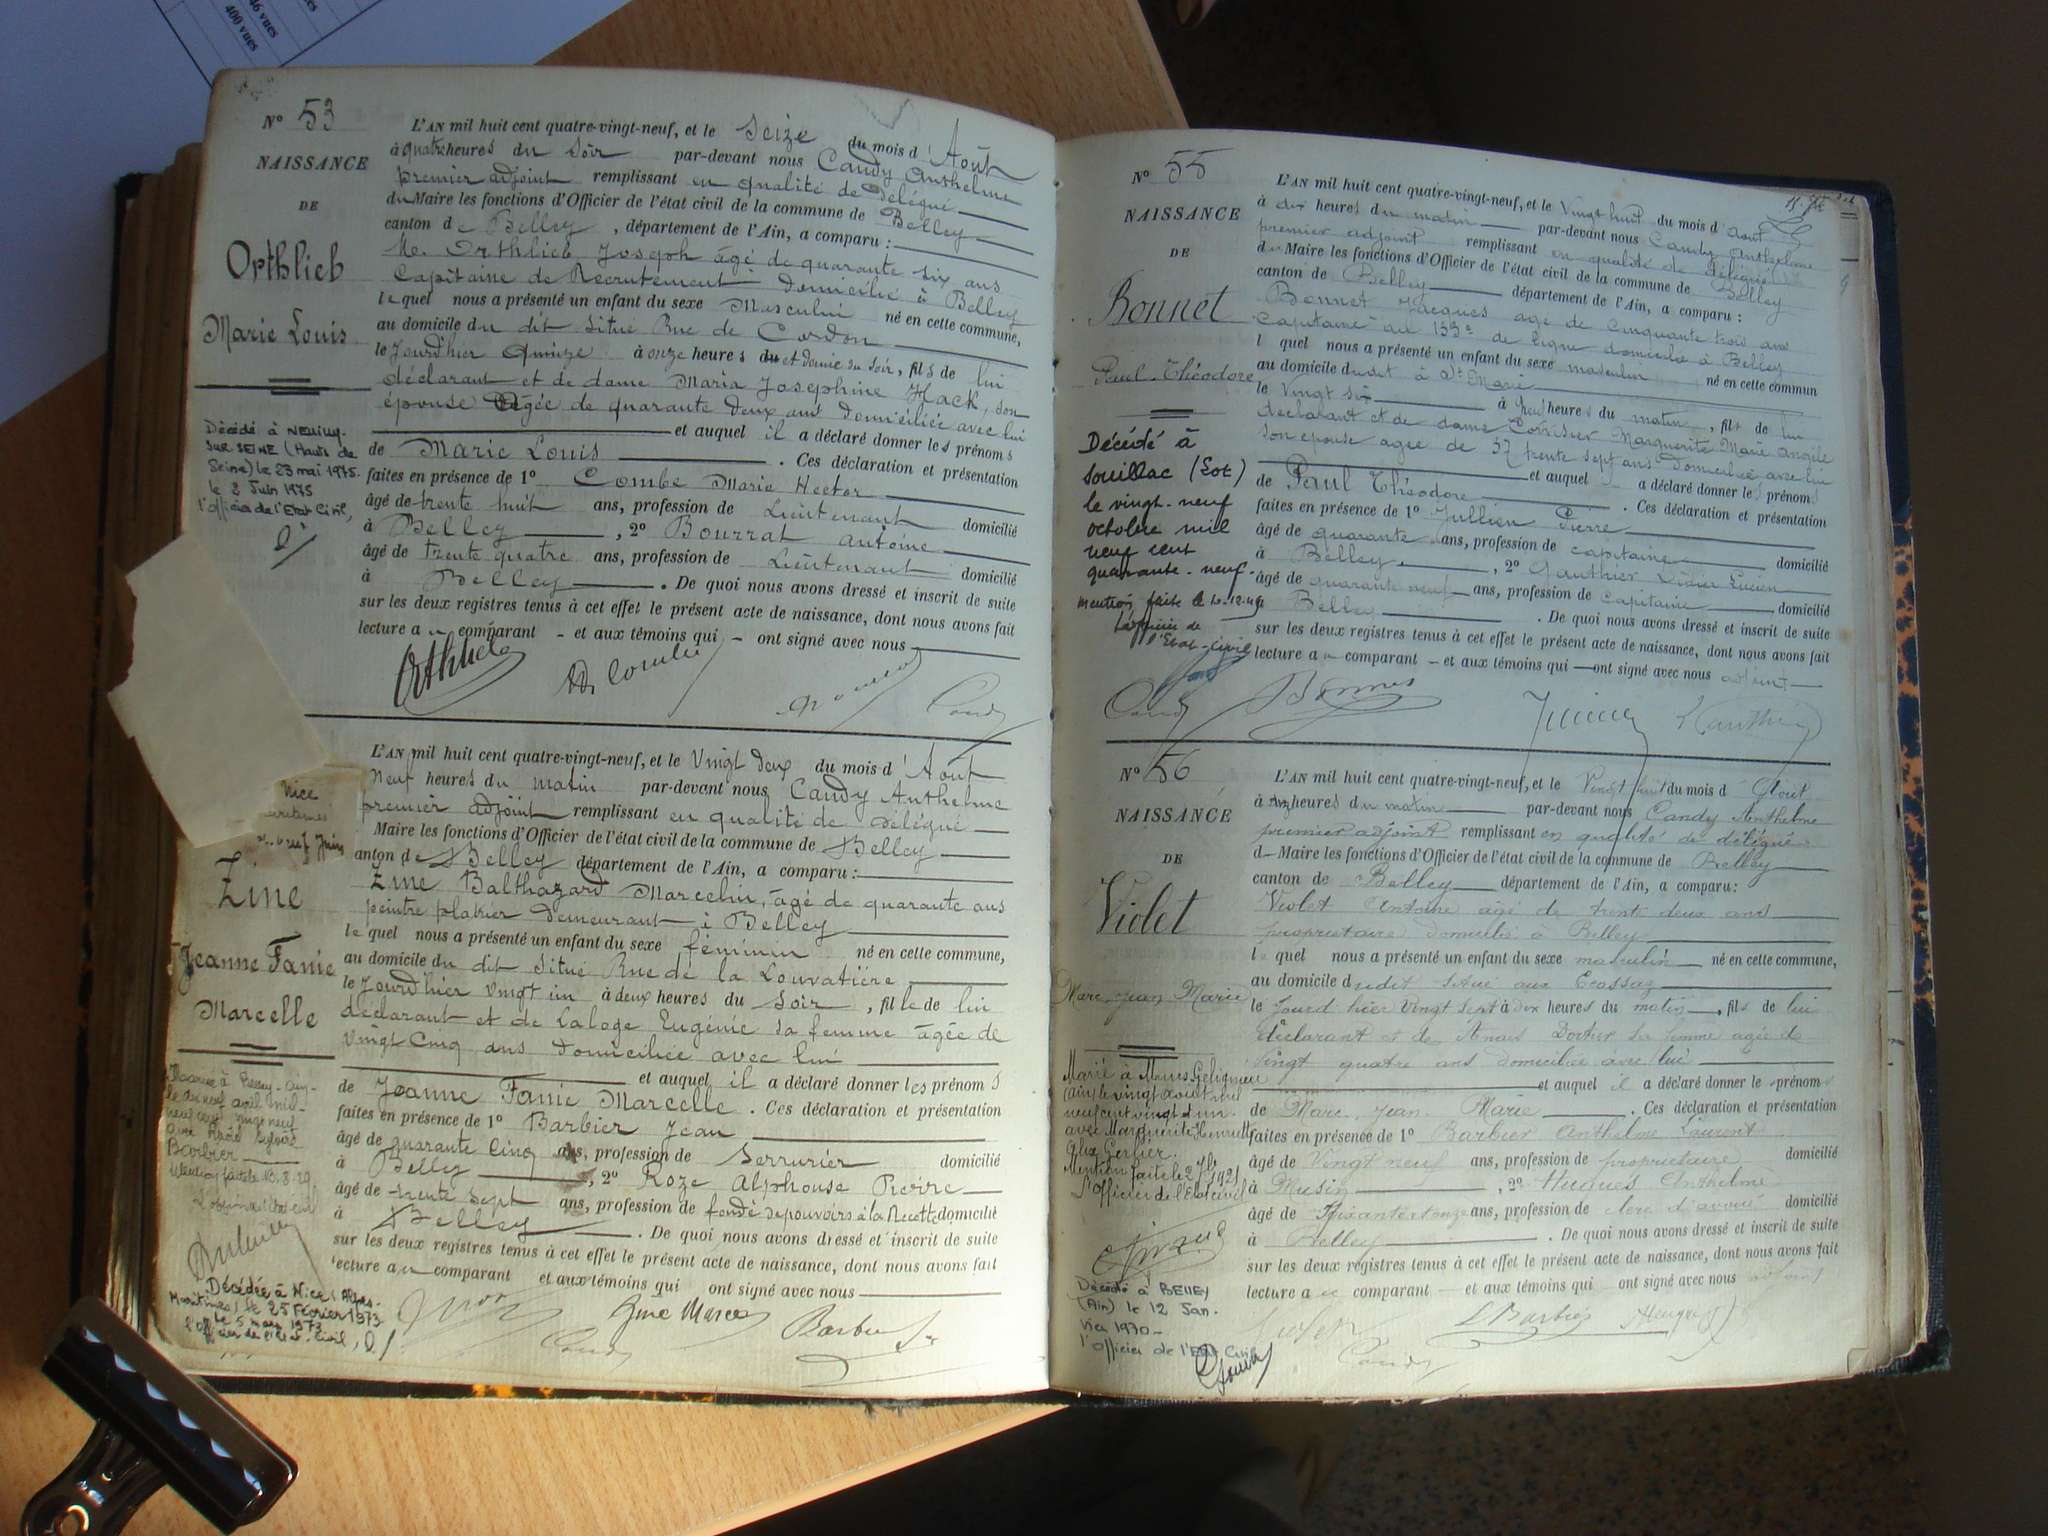 46 vues
400 vues
N° 53
NAISSANCE
DE
Orthlieb
Marie Louis
Décédé à NEUILLY-
SUR SEINE (Hauts de
Seine) le 23 mai 1975.
le 2 Juin 1975
l'officier de l'Etat Civil,
L'AN mil huit cent quatre-vingt-neuf, et le Seize du mois d'Août
à quatre heures du Soir par-devant nous Candy Anthelme
premier adjoint remplissant en qualité de délégué
du Maire les fonctions d'Officier de l'état civil de la commune de Belley
canton de Belley, département de l'Ain, a comparu :
M. Orthlieb Joseph âgé de quarante six ans
Capitaine de Recrutement domicilié à Belley
lequel nous a présenté un enfant du sexe Masculin né en cette commune,
au domicile du dit situé Rue de Cordon
le Jourd'hier Quinze à onze heures et demie du soir, fils de lui
déclarant et de dame Maria Josephine Hack, son
épouse âgée de quarante deux ans domiciliée avec lui
et auquel il a déclaré donner les prénoms
de Marie Louis. Ces déclaration et présentation
faites en présence de 1° Combe Marie Hector
âgé de trente huit ans, profession de Lieutenant domicilié
à Belley, 2° Bourrat Antoine
âgé de trente quatre ans, profession de Lieutenant domicilié
à Belley. De quoi nous avons dressé et inscrit de suite
sur les deux registres tenus à cet effet le présent acte de naissance, dont nous avons fait
lecture au comparant et aux témoins qui ont signé avec nous
Orthlieb
Candy
Nice
neuf Juin
Zine
Jeanne Fanie
Marcelle
Mariée à
le dix neuf avril mil
neuf cent
avec
Barbier
L'officier de l'Etat civil
Décédée à Nice (Alpes-
Maritimes) le 25 Février 1973
le 5 mars 1973
l'officier de l'Etat-Civil,
L'AN mil huit cent quatre-vingt-neuf, et le Vingt deux du mois d'Aout
Neuf heures du matin par-devant nous Candy Anthelme
premier adjoint remplissant en qualité de délégué
Maire les fonctions d'Officier de l'état civil de la commune de Belley
anton de Belley département de l'Ain, a comparu :
Zine Balthazard Marcelin, âgé de quarante ans
peintre plâtrier demeurant à Belley
lequel nous a présenté un enfant du sexe féminin né en cette commune,
au domicile du dit situé Rue de la Louvatière
le Jourd'hier vingt un à deux heures du Soir, fille de lui
déclarant et de Laloge Eugénie sa femme âgée de
Vingt Cinq ans domiciliée avec lui
et auquel il a déclaré donner les prénoms
de Jeanne Fanie Marcelle. Ces déclaration et présentation
faites en présence de 1° Barbier Jean
âgé de quarante Cinq ans, profession de Serrurier domicilié
à Belley, 2° Roze Alphonse Pierre
âgé de trente sept ans, profession de fondé de pouvoirs à la Recette domicilié
à Belley. De quoi nous avons dressé et inscrit de suite
sur les deux registres tenus à cet effet le présent acte de naissance, dont nous avons fait
lecture au comparant et aux témoins qui ont signé avec nous
Candy
N° 55
NAISSANCE
DE
Bonnet
Paul-Théodore
Décédé à
Souillac (Lot)
le vingt-neuf
octobre mil
neuf cent
quarante-neuf.
mention faite le 10-12-49
L'officier de
l'Etat-civil
L'AN mil huit cent quatre-vingt-neuf, et le Vingt huit du mois d'Aout
à dix heures du matin par-devant nous Candy Anthelme
premier adjoint remplissant en qualité de délégué
du Maire les fonctions d'Officier de l'état civil de la commune de Belley
canton de Belley département de l'Ain, a comparu :
Bonnet Jacques age de Cinquante trois ans
Capitaine au 133e de ligne domicilié à Belley
l quel nous a présenté un enfant du sexe masculin né en cette commun
au domicile du dit à Ste Marie
le Vingt six à neuf heures du matin, fils de lui
déclarant et de dame Corrisier Marguerite Marie Angèle
son epouse agée de 37 trente sept ans domiciliée avec lui
et auquel a déclaré donner les prénoms
de Paul Théodore. Ces déclaration et présentation
faites en présence de 1° Jullien Pierre
âgé de quarante ans, profession de capitaine domicilié
à Belley, 2° Gauthier Lucien
âgé de quarante neuf ans, profession de capitaine domicilié
Belley. De quoi nous avons dressé et inscrit de suite
sur les deux registres tenus à cet effet le présent acte de naissance, dont nous avons fait
lecture au comparant et aux témoins qui ont signé avec nous adjoint
Candy
Bonnet
Gauthier
N° 56
NAISSANCE
DE
Violet
Marc Jean Marie
Marié à
(Ain) le vingt août mil
neuf cent vingt et un
avec Marguerite Henriette
Mention faite le 2 7bre 1921
l'Officier de l'Etat civil
Décédé à BELLEY
(Ain) le 12 Jan-
vier 1970-
l'officier de l'Etat Civil
L'AN mil huit cent quatre-vingt-neuf, et le Vingt huit du mois d Août
à heures du matin par-devant nous Candy Anthelme
premier adjoint remplissant en qualité de délégué
d Maire les fonctions d'Officier de l'état civil de la commune de Belley
canton de Belley département de l'Ain, a comparu :
Violet Antoine âgé de trente deux ans
propriétaire domicilié à Belley
le quel nous a présenté un enfant du sexe masculin né en cette commune,
au domicile du dit situé aux Ecossaz
le Jourd'hier Vingt sept à dix heures du matin, fils de lui
Déclarant et de Anaïs Dortier sa femme agée de
Vingt quatre ans domiciliée avec lui
et auquel il a déclaré donner le prénoms
de Marc Jean Marie. Ces déclaration et présentation
faites en présence de 1° Barbier Anthelme Laurent
âgé de Vingt neuf ans, profession de propriétaire domicilié
à Musin, 2° Hugues Anthelme
âgé de Soixante et onze ans, profession de clerc d'avoué domicilié
à Belley. De quoi nous avons dressé et inscrit de suite
sur les deux registres tenus à cet effet le présent acte de naissance, dont nous avons fait
lecture au comparant et aux témoins qui ont signé avec nous adjoint
Violet
Candy